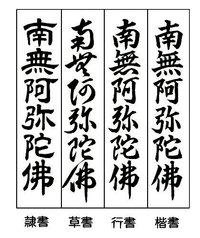 南無阿弥陀佛
南無阿弥陀佛
南無阿弥陀佛
南無阿弥陀佛
隷書
草書
行書
楷書